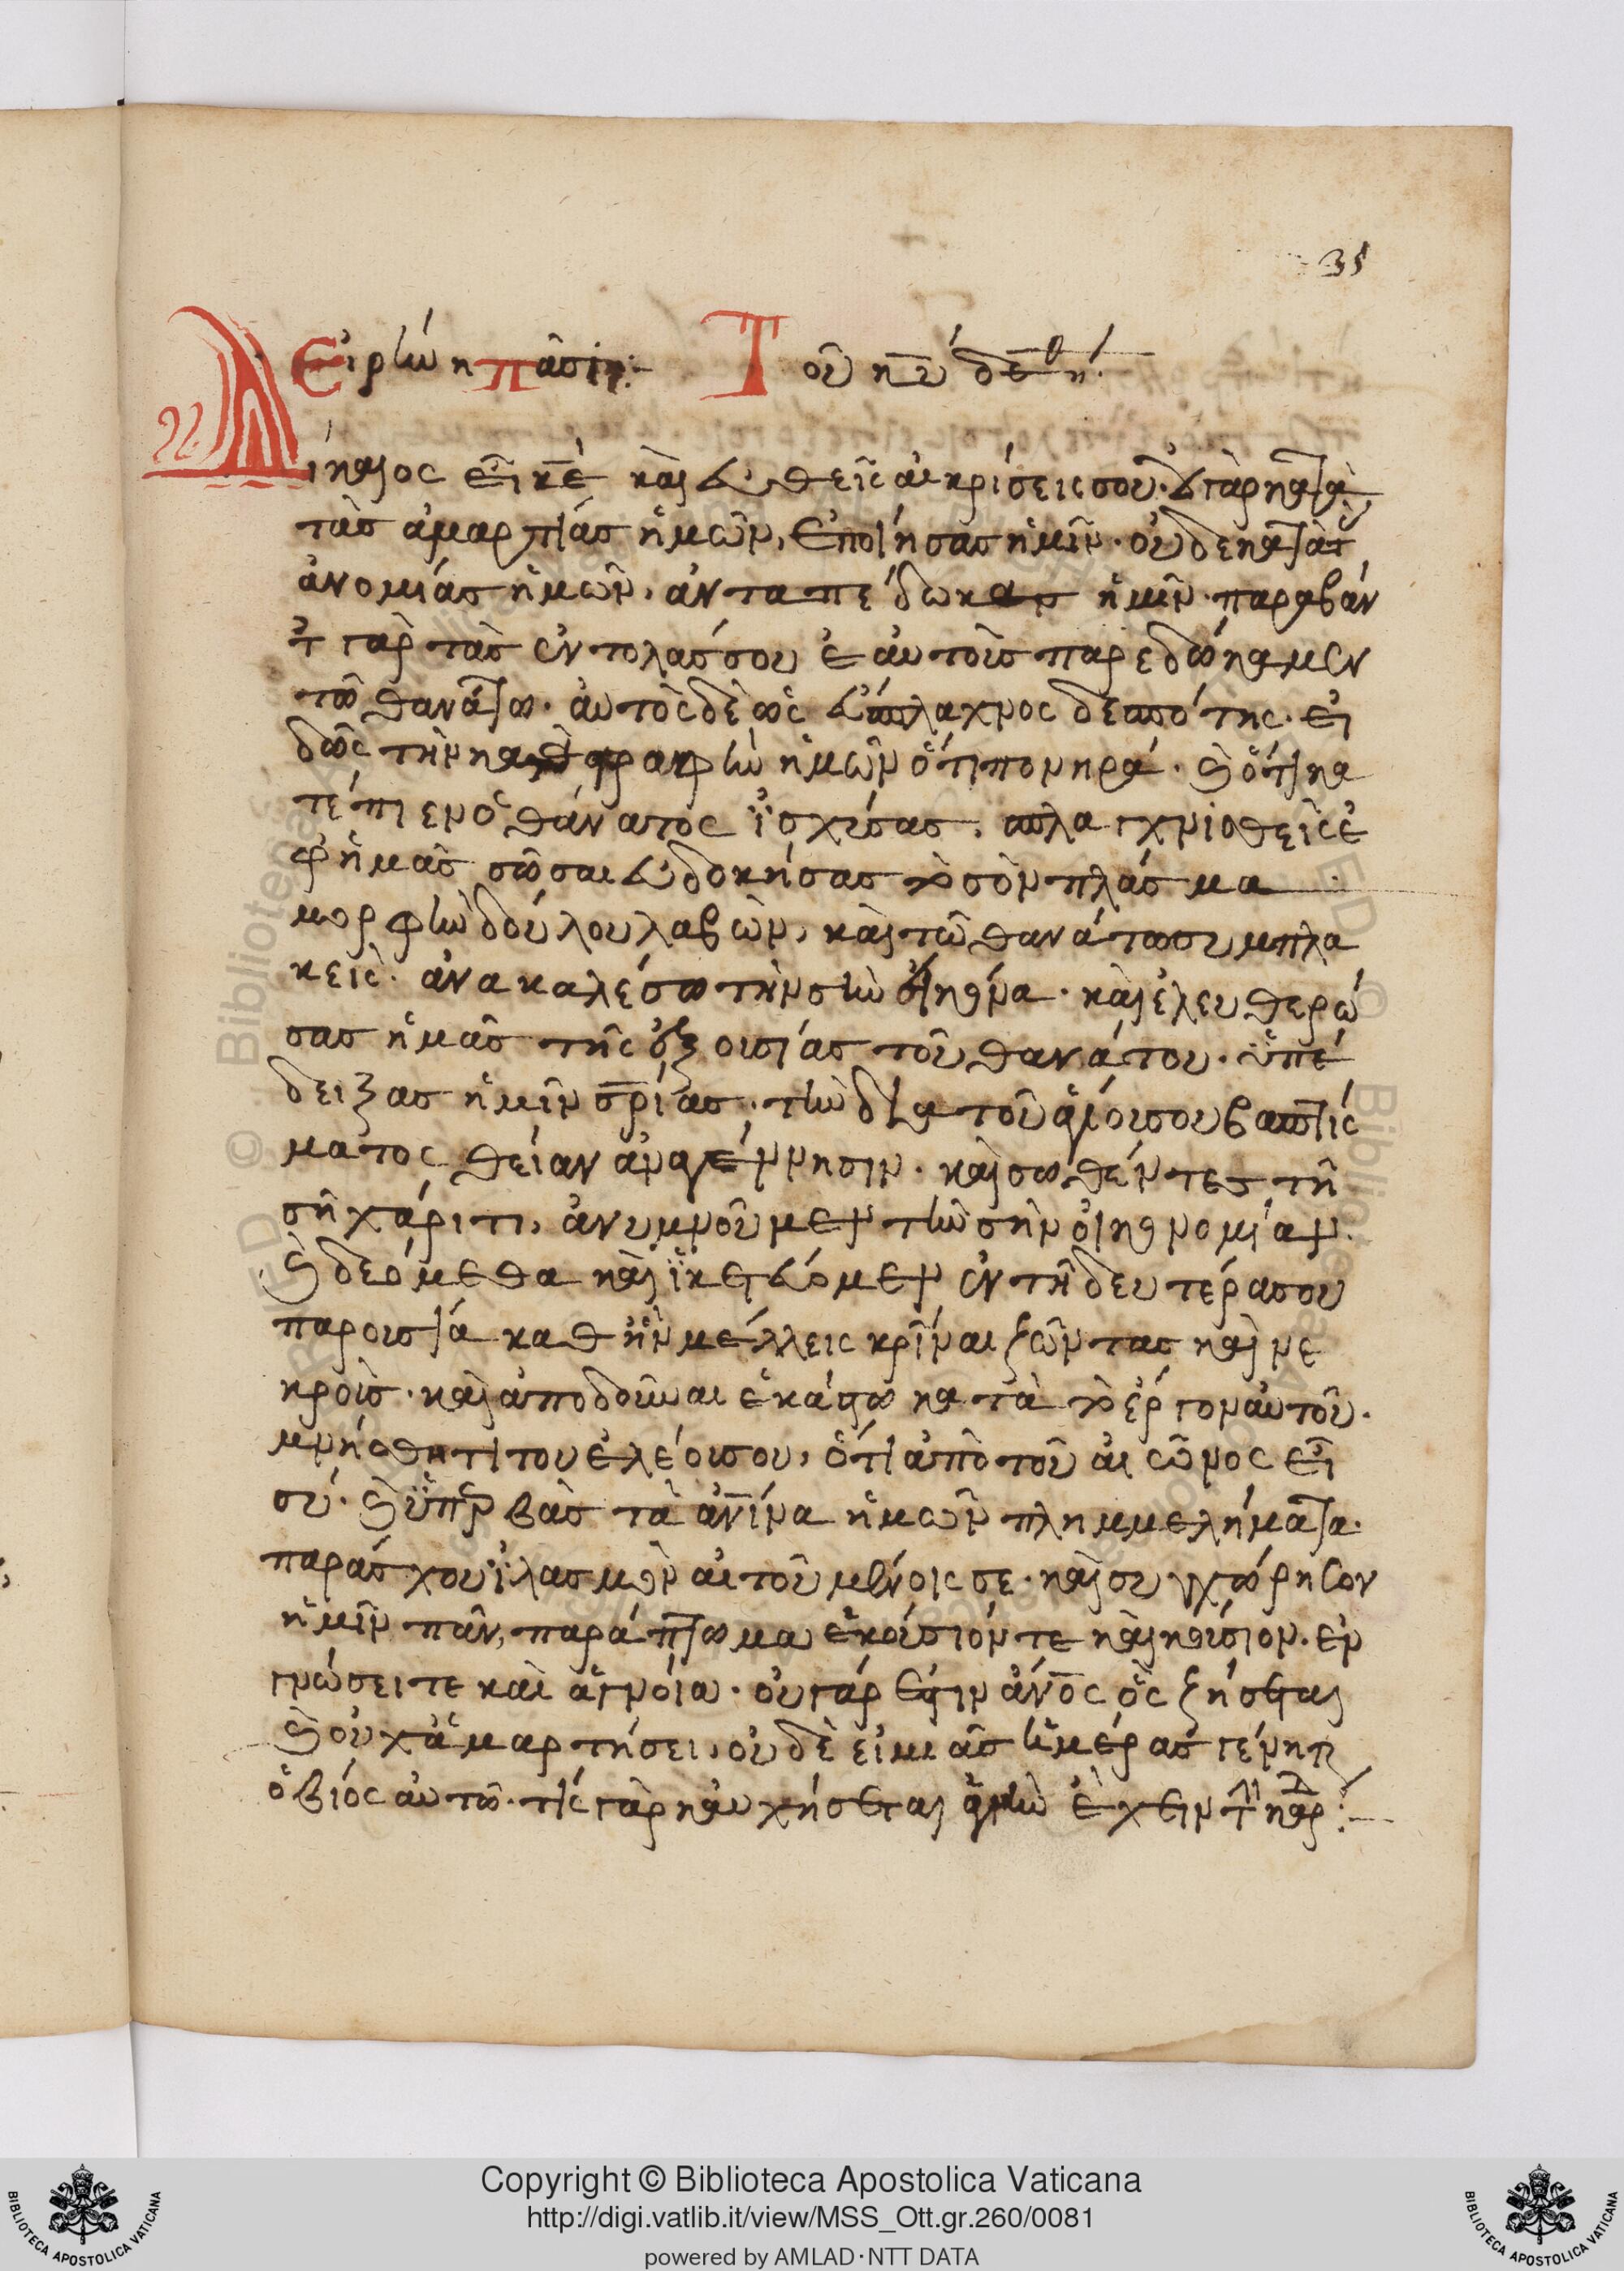 35
Εἰρήνη πᾶσιν:- Τοῦ κ̅υ̅ δε̅η̅θ:
Δίκαιος εἶ κ̅ε̅ καὶ εὐθεῖς αἱ κρίσεις σου· οὐ γὰρ κατὰ
τὰς ἁμαρτίας ἡμῶν, ἐποίησας ἡμῖν· οὐδὲ κατὰ τ
ἀνομίας ἡμῶν, ἀνταπέδωκας ἡμῖν· παραβάν
τ γὰρ τὰς ἐντολάς σου ἑαυτοὺς παρεδώκαμεν
τῶ θανάτω· αὐτὸς δὲ ὡς εὔσπλαχνος δεσπότης· εἰ
δὼς τὴν καταφρονὴν ἡμῶν ὅτι πονηρά· καὶ ὅτι κα
τέπιεν ὁ θάνατος ἰσχύσας, σπλαγχνισθεὶς ἐ
φ ἡμᾶς σῶσαι εὐδοκήσας τὸ σὸν πλάσμα
μορφὴν δούλου λαβὼν, καὶ τῶ θανάτω συμπλα
κεὶς· ἀνακαλέσω τὴν σὴν εἰκόνα· καὶ ἐλευθερώ
σας ἡμᾶς τῆς ἐξουσίας τοῦ θανάτου· ὑπέ
δειξας ἡμῖν σ̅ρ̅ίας, τὴν διὰ τοῦ ἁγίου σου βαπτίσ
ματος θείαν ἀναγέννησιν· καὶ σωθέντες τῆ
σῆ χάριτι, ἀνυμνοῦμεν τὴν σὴν οἰκονομίαν·
καὶ δεόμεθα καὶ ἱκετεύομεν ἐν τῆ δευτέρα σου
παρουσία καθ ἣν μέλλεις κρῖναι ζῶντας καὶ νε
κροὺς· καὶ ἀποδοῦναι ἑκάστω κατὰ τὸ ἔργον αὐτοῦ·
μνήσθητι τοῦ ἐλέους σου, ὅτι ἀπὸ τοῦ αἰῶνος εἶ
σύ· καὶ ὑπερβὰς τὰ ἀν̅ίνα ἡμῶν πλημμελήματα·
παράσχου ἱλασμὸν αἰτουμένοις σε· καὶ συγχώρησον
ἡμῖν πᾶν, παράπτωμα ἑκούσιόν τε καὶ ἀκούσιον· ἐν
γνώσει τε καὶ ἀγνοία· οὐ γάρ ἐστιν ἄν̅ο̅ς ὃς ζήσεται
καὶ οὐχ ἁμαρτήσει, οὐδὲ εἰ μιᾶς ἡμέρας γένητ
ὁ βίος αὐτῶ· τίς γὰρ καυχήσεται ἁγνὴν ἔχειν τ καρδ:-
Copyright © Biblioteca Apostolica Vaticana
http://digi.vatlib.it/view/MSS_Ott.gr.260/0081
powered by AMLAD·NTT DATA
BIBLIOTECA APOSTOLICA VATICANA
BIBLIOTECA APOSTOLICA VATICANA